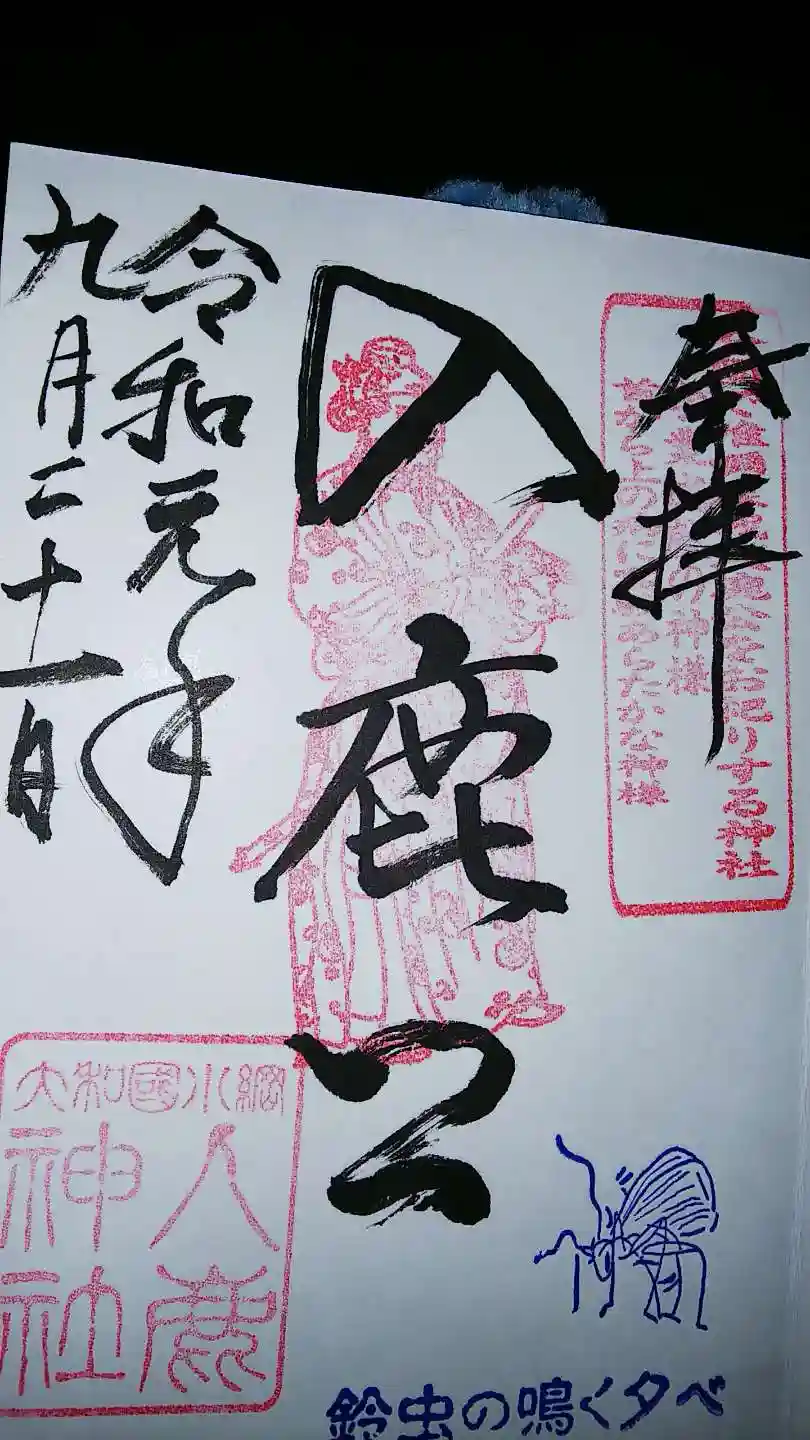 奉拝
りする神社
神様
あらたかな神様
入鹿公
令和元年
九月二十一日
大和國小綱
入鹿
神社
鈴虫の鳴く夕べ